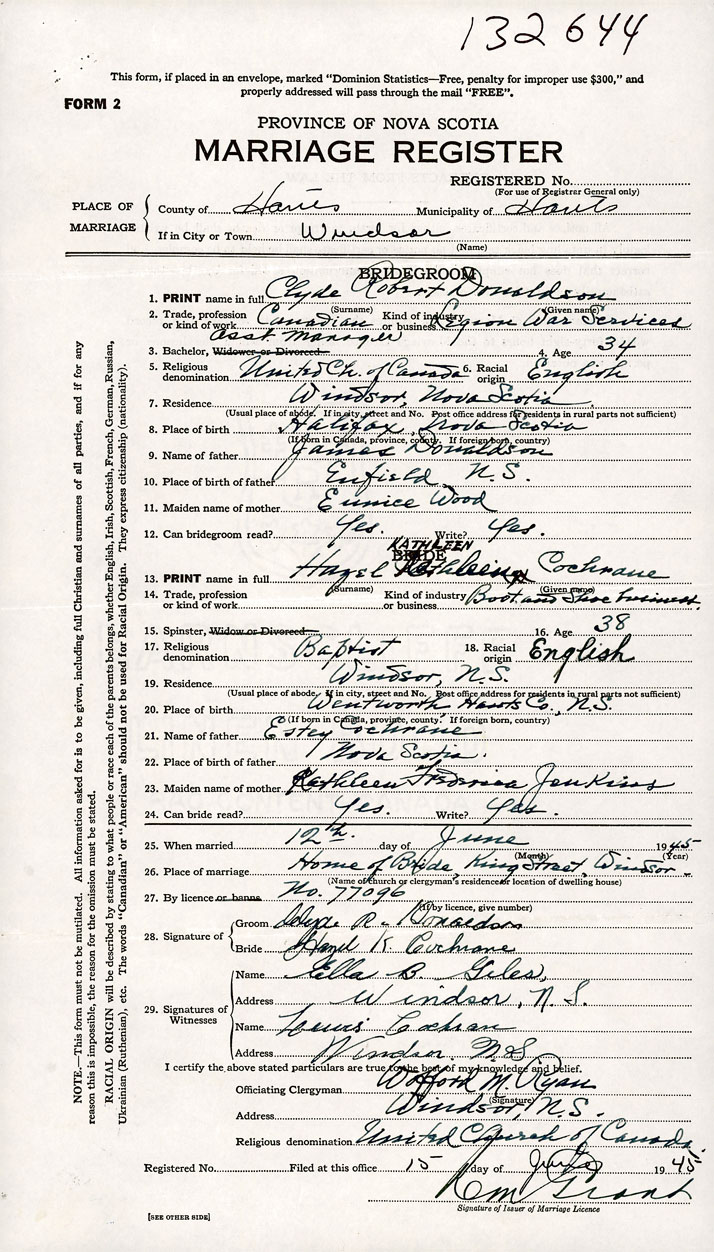 132644
This form, if placed in an envelope, marked "Dominion Statistics—Free, penalty for improper use $300," and
properly addressed will pass through the mail "FREE".
FORM 2
PROVINCE OF NOVA SCOTIA
MARRIAGE REGISTER
REGISTERED No.
(For use of Registrar General only)
PLACE OF MARRIAGE
County of Hants Municipality of Hants
If in City or Town Windsor
(Name)
BRIDEGROOM
1. PRINT name in full Clyde Robert Donaldson
(Surname) (Given name)
2. Trade, profession or kind of work Canadian Kind of industry or business Legion War Services
Asst Manager
3. Bachelor, Widower or Divorced 4. Age 34
5. Religious denomination United Ch. of Canada 6. Racial origin English
7. Residence Windsor, Nova Scotia
(Usual place of abode. If in city, street and No. Post office address for residents in rural parts not sufficient)
8. Place of birth Halifax, Nova Scotia
(If born in Canada, province, county. If foreign born, country)
9. Name of father James Donaldson
10. Place of birth of father Enfield, N.S.
11. Maiden name of mother Eunice Wood
12. Can bridegroom read? Yes. Write? Yes.
KATHLEEN
BRIDE
13. PRINT name in full Hazel Kathleen Cochrane
(Surname) (Given name)
14. Trade, profession or kind of work Kind of industry or business Boot and Shoe business.
15. Spinster, Widow or Divorced 16. Age 38
17. Religious denomination Baptist 18. Racial origin English
19. Residence Windsor, N.S.
(Usual place of abode. If in city, street and No. Post office address for residents in rural parts not sufficient)
20. Place of birth Wentworth Hants Co., N.S.
(If born in Canada, province, county. If foreign born, country)
21. Name of father Estey Cochrane
22. Place of birth of father Nova Scotia.
23. Maiden name of mother Kathleen Fredrica Jenkins
24. Can bride read? Yes. Write? Yes.
25. When married 12th. day of June 1945
(Month) (Year)
26. Place of marriage Home of Bride, King Street, Windsor
(Name of church or clergyman's residence or location of dwelling house)
27. By licence or banns No. 77096
(If by licence, give number)
28. Signature of
Groom Clyde R. Donaldson
Bride Hazel K Cochrane
29. Signatures of Witnesses
Name Ella B. Giles,
Address Windsor, N.S.
Name Lewis Cochran
Address Windsor. N.S
I certify the above stated particulars are true to the best of my knowledge and belief.
Officiating Clergyman Wofford M. Ryan
(Signature)
Address Windsor, N.S.
Religious denomination United Church of Canada.
Registered No. Filed at this office 15 day of 1945
Grant
Signature of Issuer of Marriage Licence
[SEE OTHER SIDE]
NOTE.—This form must not be mutilated. All information asked for is to be given, including full Christian and surnames of all parties, and if for any
reason this is impossible, the reason for the omission must be stated.
RACIAL ORIGIN will be described by stating to what people or race each of the parents belongs, whether English, Irish, Scottish, French, German, Russian,
Ukrainian (Ruthenian), etc. The words "Canadian" or "American" should not be used for Racial Origin. They express citizenship (nationality).